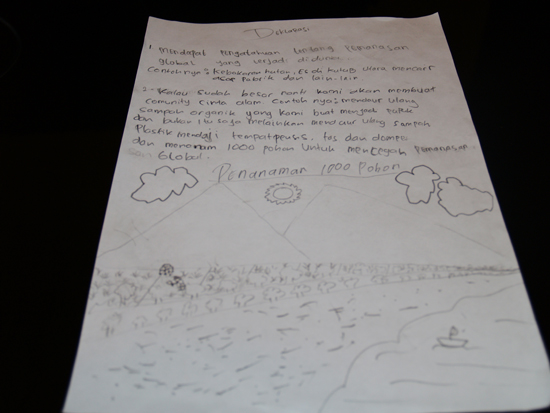 Diskusi
1. Mendapat pengetahuan tentang Pemanasan
global yang terjadi didunia.
Contohnya: Kebakaran hutan, Es di kutub utara mencair
asap Pabrik dan lain-lain
2. Kalau sudah besar nanti kami akan membuat
comunity cinta alam. Contoh nya: mendaur ulang
sampah organik yang kami buat menjadi pupuk
dan bukan itu saja melainkan mendaur ulang sampah
Plastik menjadi tempat pensil, tas dan dompet
dan menanam 1000 pohon untuk mencegah Pemanasan
Global.
Penanaman 1000 Pohon